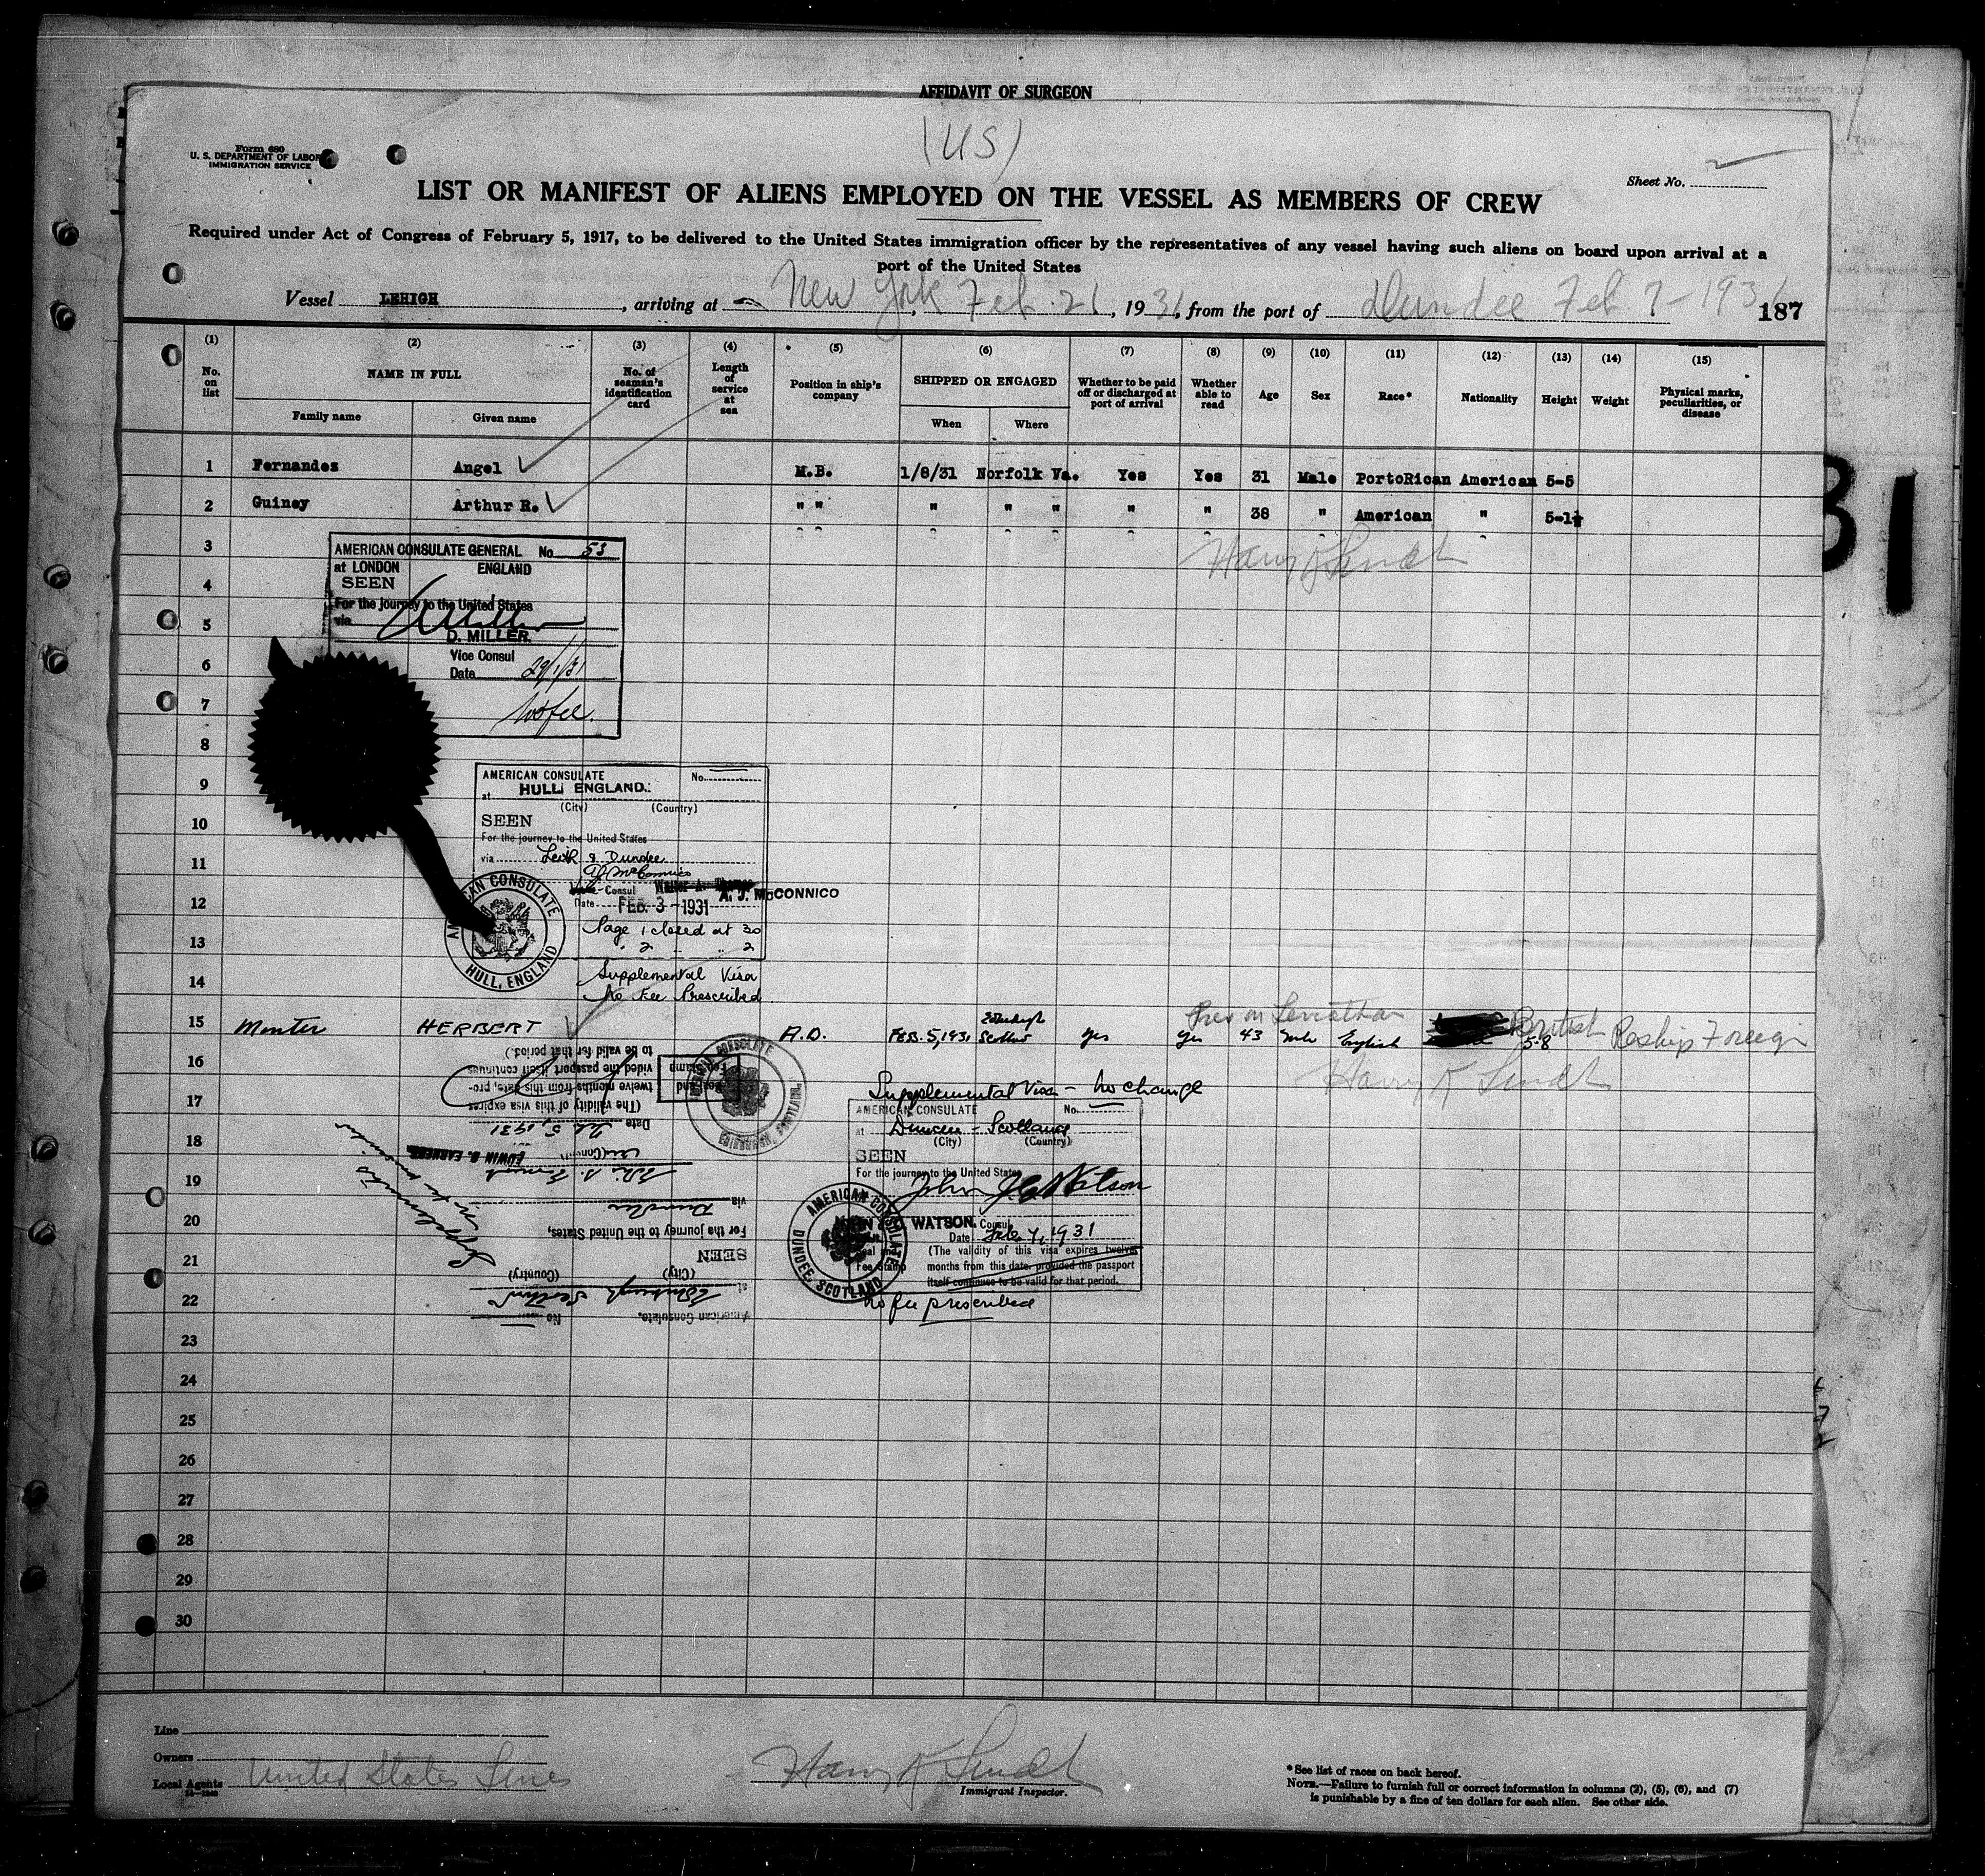 AFFIDAVIT OF SURGEON
(US)
Form 680
U. S. DEPARTMENT OF LABOR
IMMIGRATION SERVICE
Sheet No. 2
LIST OR MANIFEST OF ALIENS EMPLOYED ON THE VESSEL AS MEMBERS OF CREW
Required under Act of Congress of February 5, 1917, to be delivered to the United States immigration officer by the representatives of any vessel having such aliens on board upon arrival at a
port of the United States
Vessel LEHIGH, arriving at New York Feb. 21, 1931, from the port of Dundee Feb 7-1931
187
(1) (2) (3) (4) (5) (6) (7) (8) (9) (10) (11) (12) (13) (14) (15)
No. on list NAME IN FULL No. of seaman's identification card Length of service at sea Position in ship's company SHIPPED OR ENGAGED Whether to be paid off or discharged at port of arrival Whether able to read Age Sex Race* Nationality Height Weight Physical marks, peculiarities, or disease
Family name Given name When Where
1 Fernandez Angel M.B. 1/8/31 Norfolk Va. Yes Yes 31 Male PortoRican American 5-5
2 Guiney Arthur R. " " " " " " " 38 " American " 5-1½
3
Harry K Lindt
31
AMERICAN CONSULATE GENERAL No. 53
at LONDON ENGLAND
SEEN
For the journey to the United States
via
D. MILLER.
Vice Consul
Date 29/1/31
No fee.
4
5
6
7
8
AMERICAN CONSULATE No.
at HULL ENGLAND.
(City) (Country)
SEEN
For the journey to the United States
via Leith & Dundee
A J McConnico
Consul A. J. McCONNICO
Date FEB. 3-1931
Page 1 closed at 30
" 2 " " 2
Supplemental Visa
No Fee Prescribed
AMERICAN CONSULATE
HULL, ENGLAND
9
10
11
12
13
14
Prev on Leviathan
15 Monter HERBERT A.D. FEB. 5, 1931 Edinburgh Scotland yes yes 43 Male English British 5-8 Reship Foreign
Harry K Lindt
16
17
18
19
20
21
22
American Consulate, No
at Edinburgh Scotland
(City) (Country)
SEEN
For the journey to the United States,
via Dundee
EDWIN B. EARNEST
Consul
Date Feb 5, 1931
(The validity of this visa expires
twelve months from this date, pro-
vided the passport itself continues
to be valid for that period.)
Seal and
Fee Stamp
EDINBURGH, SCOTLAND.
Supplemental Visa - No change
AMERICAN CONSULATE No.
at Dundee - Scotland
(City) (Country)
SEEN
For the journey to the United States
John J. C. Watson
WATSON. Consul
Date Feb. 7, 1931
Seal and
Fee Stamp
(The validity of this visa expires twelve
months from this date, provided the passport
itself continues to be valid for that period.
No fee prescribed
AMERICAN CONSULATE
DUNDEE, SCOTLAND
23
24
25
26
27
28
29
30
Line
Owners
Local Agents United States Lines
Harry K Lindt
Immigrant Inspector.
*See list of races on back hereof.
NOTE.—Failure to furnish full or correct information in columns (2), (5), (6), and (7)
is punishable by a fine of ten dollars for each alien. See other side.